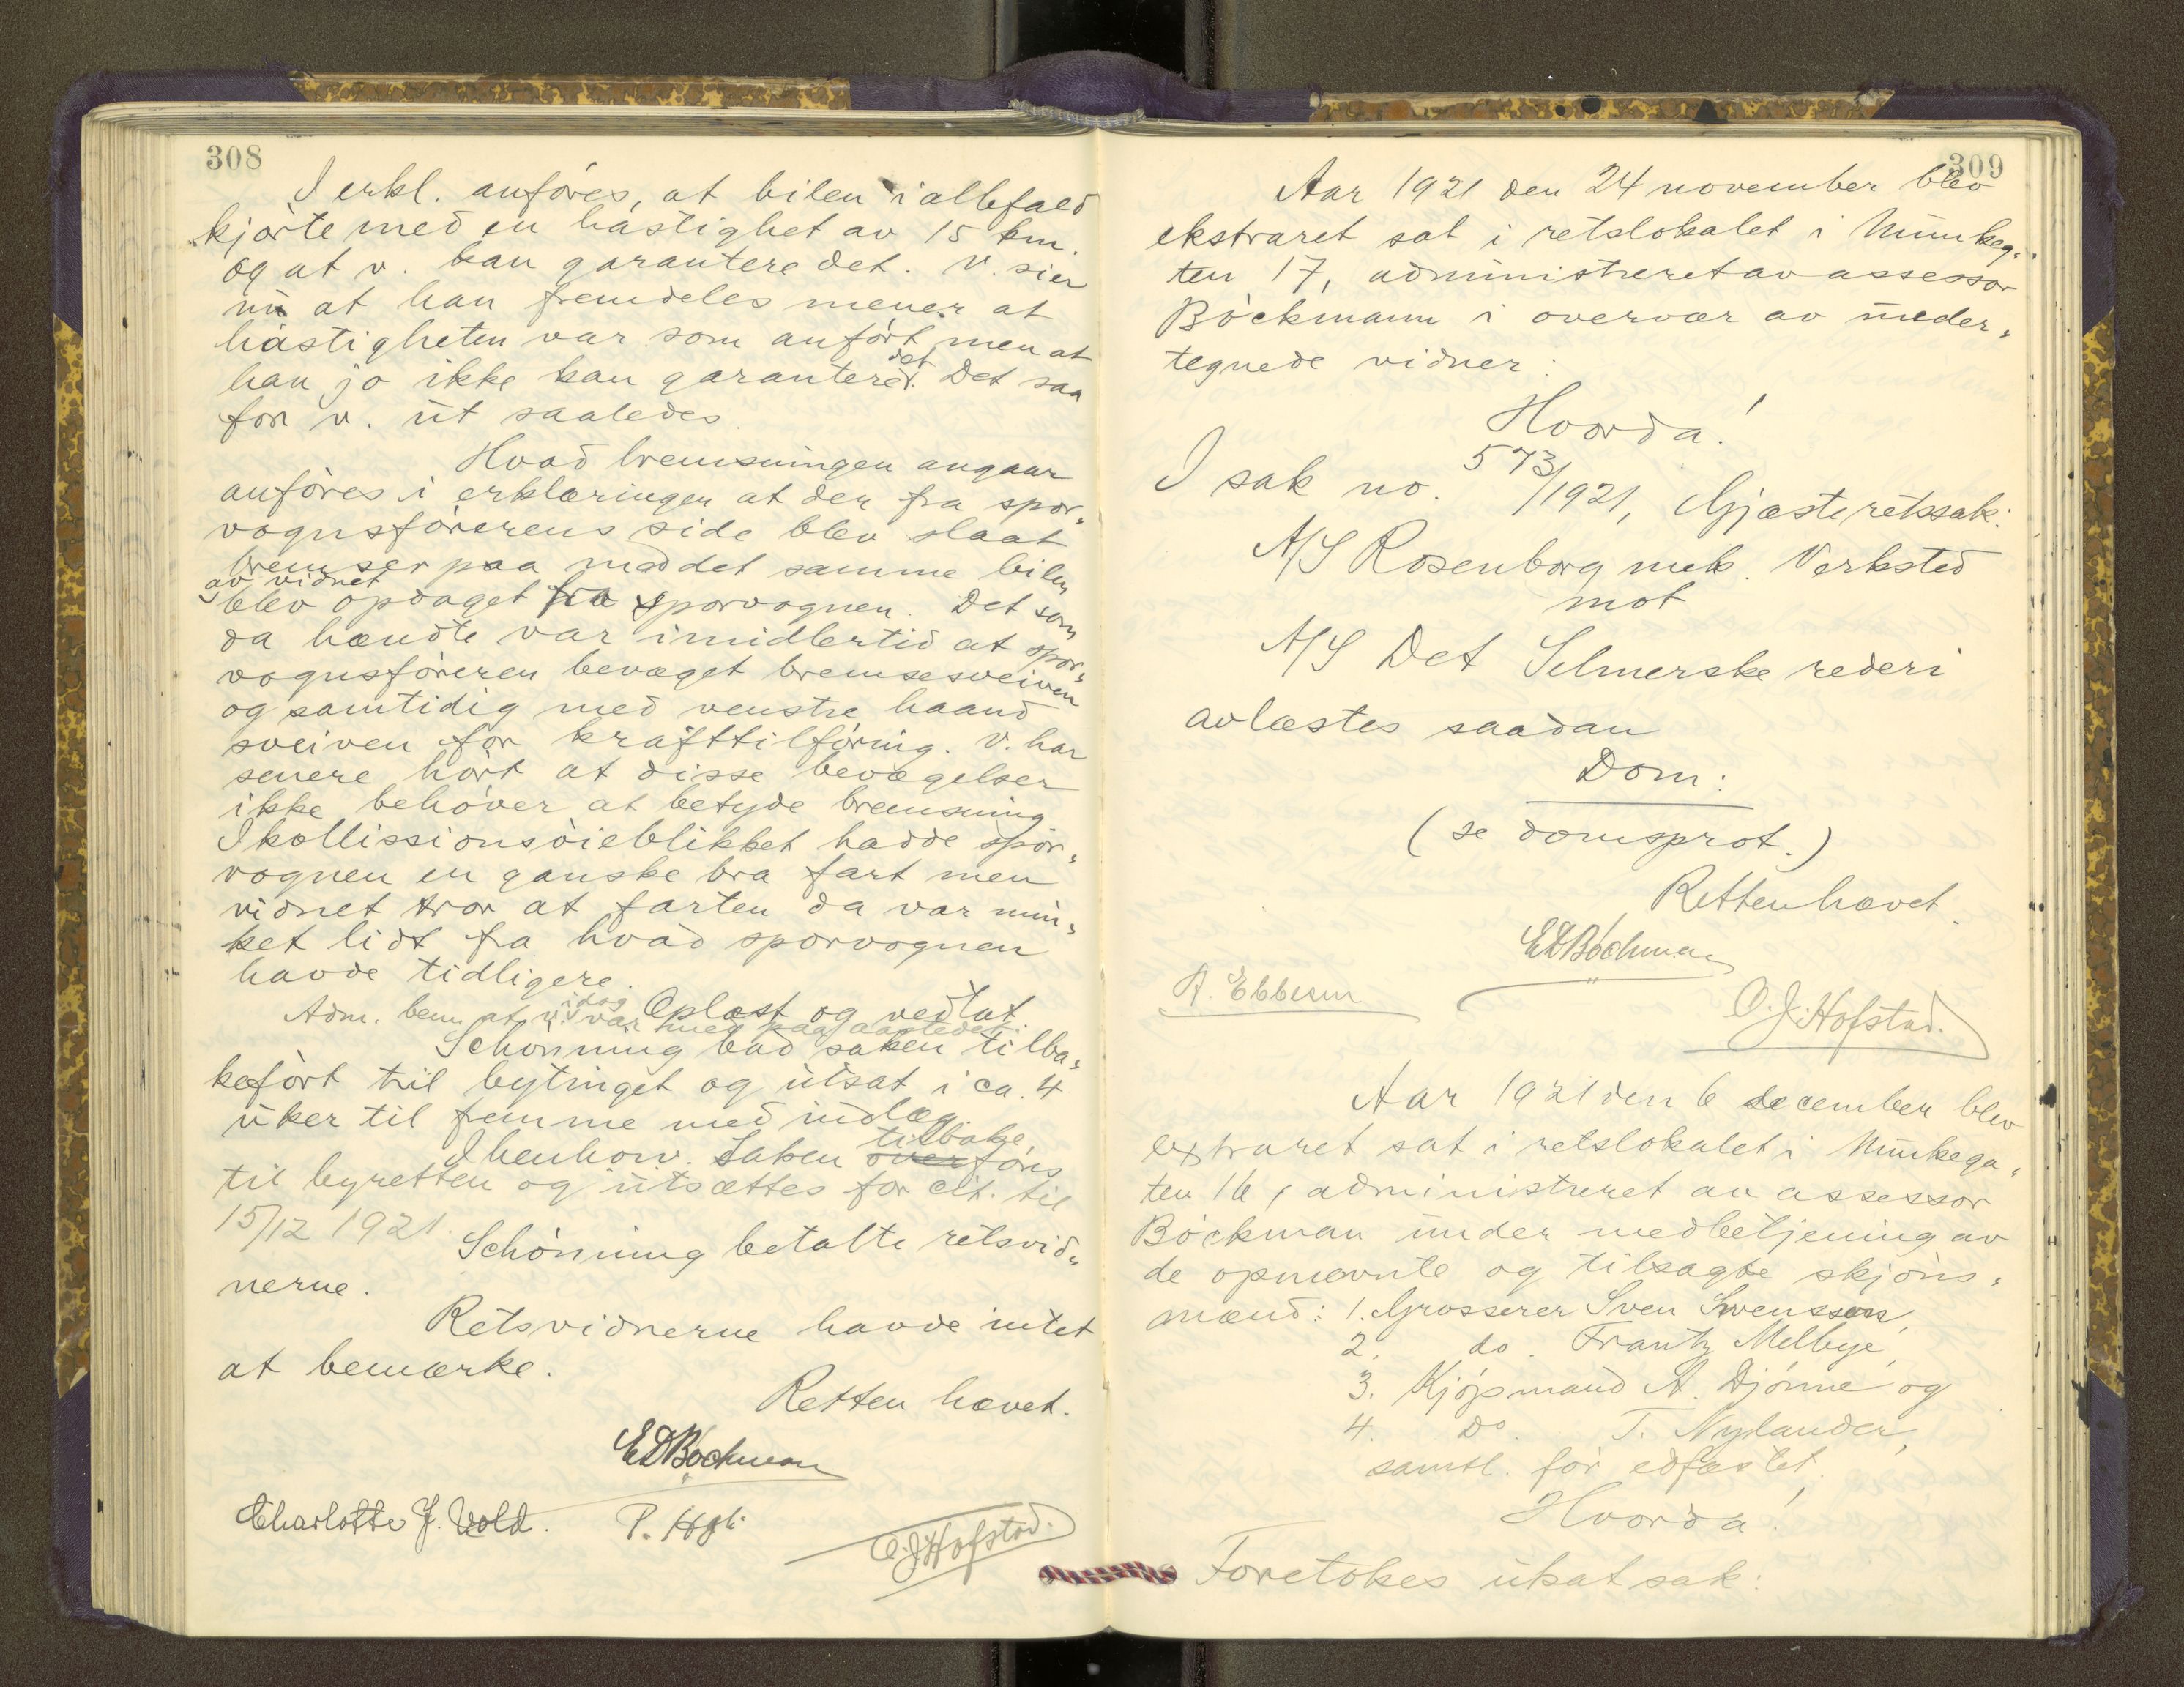 308
I erkl. anføres, at bilen iallefald
kjørte med en hastighet av 15 km.
og at v. kan garantere det. V. sier
nu at han fremdeles mener at
hastigheten var som anført, men at
han jo ikke kan garantere det. Det saa
for v. ut saaledes.
Hvad bremsningen angaar
anføres i erklæringen at der fra spor-
vognsførerens side blev slaat
bremser paa med det samme bilen
av vidnet
blev opdaget fra sporvognen. Det som
da hændte var imidlertid at spor-
vognsføreren bevæget bremsesveiven
og samtidig med venstre haand
sveiven for krafttilføring. V. har
senere hørt at disse bevægelser
ikke behøver at betyde bremsning
I kollissionsøieblikket hadde spor-
vognen en ganske bra fart men
vidnet tror at farten da var min-
ket lidt fra hvad sporvognen
havde tidligere.
Oplæst og vedtat
Adm. bem. at v. idag var med paa aastedet.
Schønning bad saken tilba-
keført til bytinget og utsat i ca. 4
uker til femme med indlæg.
I henhorv. Saken over tilbake-
føres
til byretten og utsættes for cit. til
15/12 1921.
Schønning betalte retsvid-
nerne.
Retsvidnerne havde intet
at bemærke.
Retten hævet.
EDBøckman
Charlotte J. Vold. P.
O.J.Hofstad.
309
Aar 1921 den 24 november blev
ekstraret sat i retslokalet i Munkega-
ten 17, administreret av assessor
Bøckmann i overvær av under-
tegnede vidner:
Hvorda!
I sak no. 573/1921, Gjæsteretssak:
A/S Rosenborg mek. Verksted
mot
A/S Det Selmerske rederi
avlæstes saadan
Dom:
(se domsprot.)
Retten hævet.
EDBøckman
A. Ebbesen
O.J.Hofstad.
Aar 1921 den 6 december blev
extraret sat i retslokalet i Munkega-
ten 16, administreret av assessor
Bøckman under medbetjening av
de opnævnte og tilsagte skjøns-
mænd: 1. Grosserer Sven Svenssen,
2. do. Frantz Melbye,
3. Kjøpmand A. Djønne og
4. do. T. Nylander,
samtl. før edfæstet.
Hvorda!
Foretokes utsat sak: